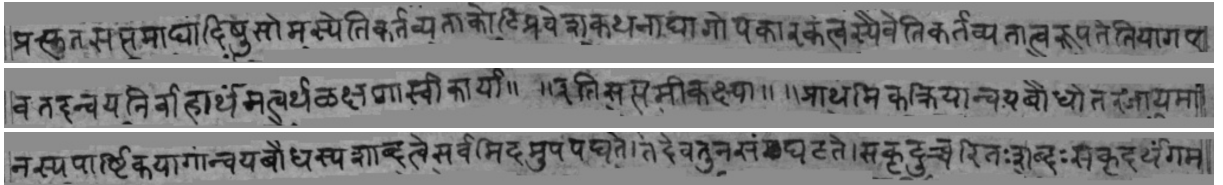 प्रस्तुतससप्तमाद्यादिषुसोमस्येतिकर्तव्यताकोटिप्रवेशकथनाद्यागोपकारकंत्वस्यैवेतिकर्तव्यतात्वरूपतेतियागए
वतदन्वयनिर्वाहार्थंमत्वर्थळक्षणास्वीकार्या॥ ॥इतिसप्तमीकक्ष्या॥ ॥प्राथमिकक्रियान्वयबोधोत्तरजायमा
नस्यपार्ष्टिकयागान्वयबोधस्यशाब्दत्वेसर्वमिदमुपपद्यते।तदेवतुनसंघटते।सकृदुच्चरितःशब्दःसकृदर्थंगम